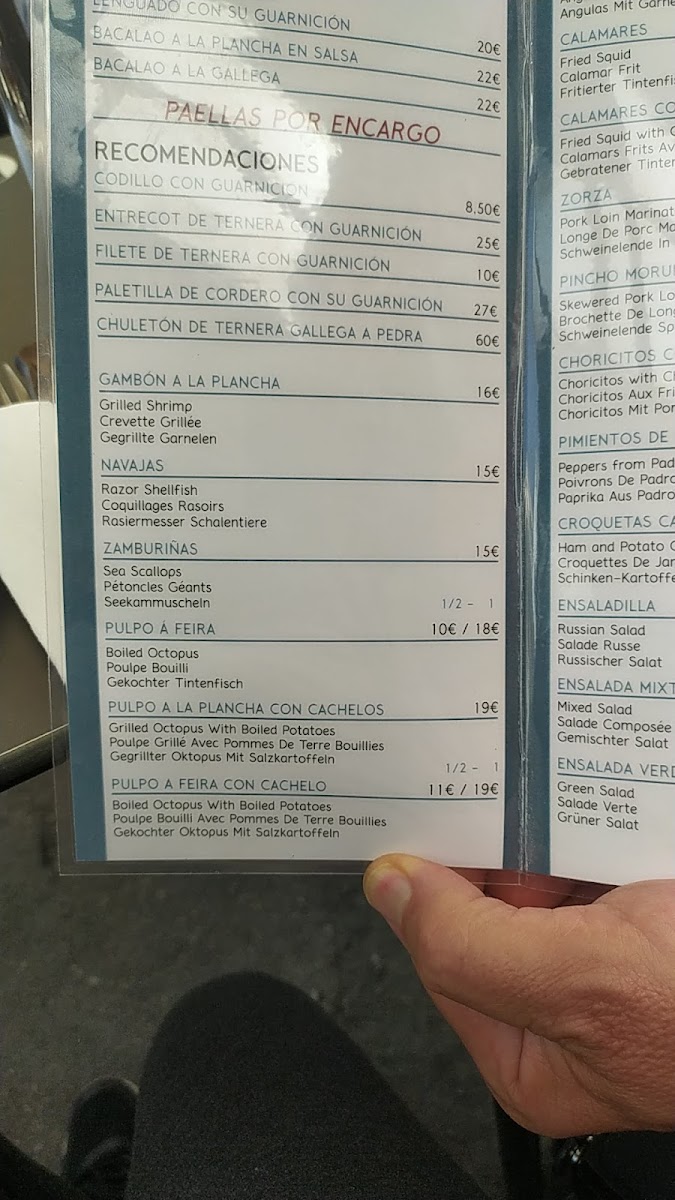 LENGUADO CON SU GUARNICIÓN 20€
BACALAO A LA PLANCHA EN SALSA 22€
BACALAO A LA GALLEGA 22€
PAELLAS POR ENCARGO
RECOMENDACIONES
CODILLO CON GUARNICION 8,50€
ENTRECOT DE TERNERA CON GUARNICIÓN 25€
FILETE DE TERNERA CON GUARNICIÓN 10€
PALETILLA DE CORDERO CON SU GUARNICIÓN 27€
CHULETÓN DE TERNERA GALLEGA A PEDRA 60€
GAMBÓN A LA PLANCHA 16€
Grilled Shrimp
Crevette Grillée
Gegrillte Garnelen
NAVAJAS 15€
Razor Shellfish
Coquillages Rasoirs
Rasiermesser Schalentiere
ZAMBURIÑAS 15€
Sea Scallops
Pétoncles Géants
Seekammuscheln
1/2 - 1
PULPO Á FEIRA 10€ / 18€
Boiled Octopus
Poulpe Bouilli
Gekochter Tintenfisch
PULPO A LA PLANCHA CON CACHELOS 19€
Grilled Octopus With Boiled Potatoes
Poulpe Grillé Avec Pommes De Terre Bouillies
Gegrillter Oktopus Mit Salzkartoffeln
1/2 - 1
PULPO A FEIRA CON CACHELO 11€ / 19€
Boiled Octopus With Boiled Potatoes
Poulpe Bouilli Avec Pommes De Terre Bouillies
Gekochter Oktopus Mit Salzkartoffeln
Angulas Mit
CALAMARES
Fried Squid
Calamar Frit
Fritierter
CALAMARES
Fried Squid with
Calamars Frits
Gebratener
ZORZA
Pork Loin
Longe De Porc
Schweinelende In
PINCHO
Skewered Pork
Brochette De
Schweinelende
CHORICITOS
Choricitos with
Choricitos Aux
Choricitos Mit
PIMIENTOS DE
Peppers from
Poivrons De
Paprika Aus
CROQUETAS
Ham and Potato
Croquettes De
ENSALADILLA
Russian Salad
Salade Russe
Russischer Salat
ENSALADA
Mixed Salad
Salade Composée
Gemischter Salat
ENSALADA
Green Salad
Salade Verte
Grüner Salat